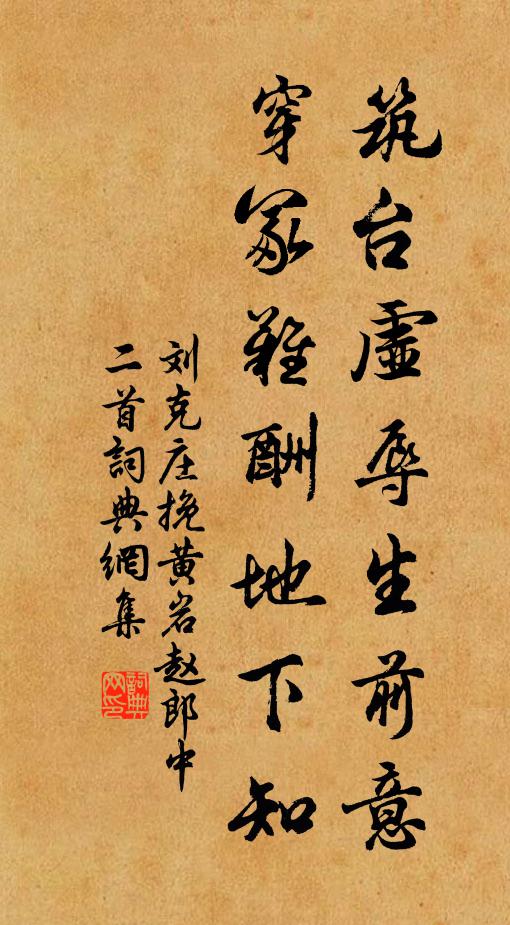 筑台虚辱生前意
穿冢难酬地下知
刘克庄挽黄岩赵郎中
二首詞典網集
詞典
网印